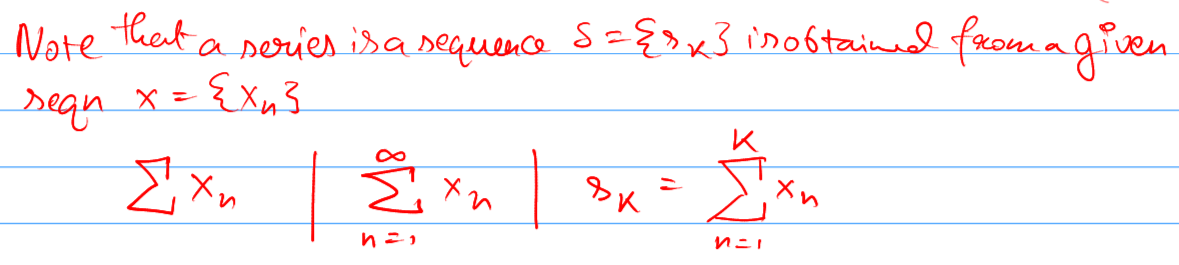 Note that a series is a sequence S = {s_k} is obtained from a given
seqn x = {x_n}
∑ x_n | ∑_{n=1}^{∞} x_n | s_k = ∑_{n=1}^{k} x_n